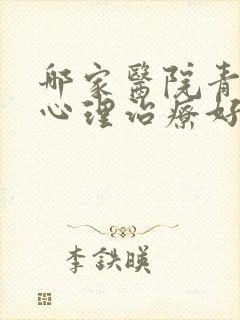 哪家醫院青
心理治療好
李鉄暎